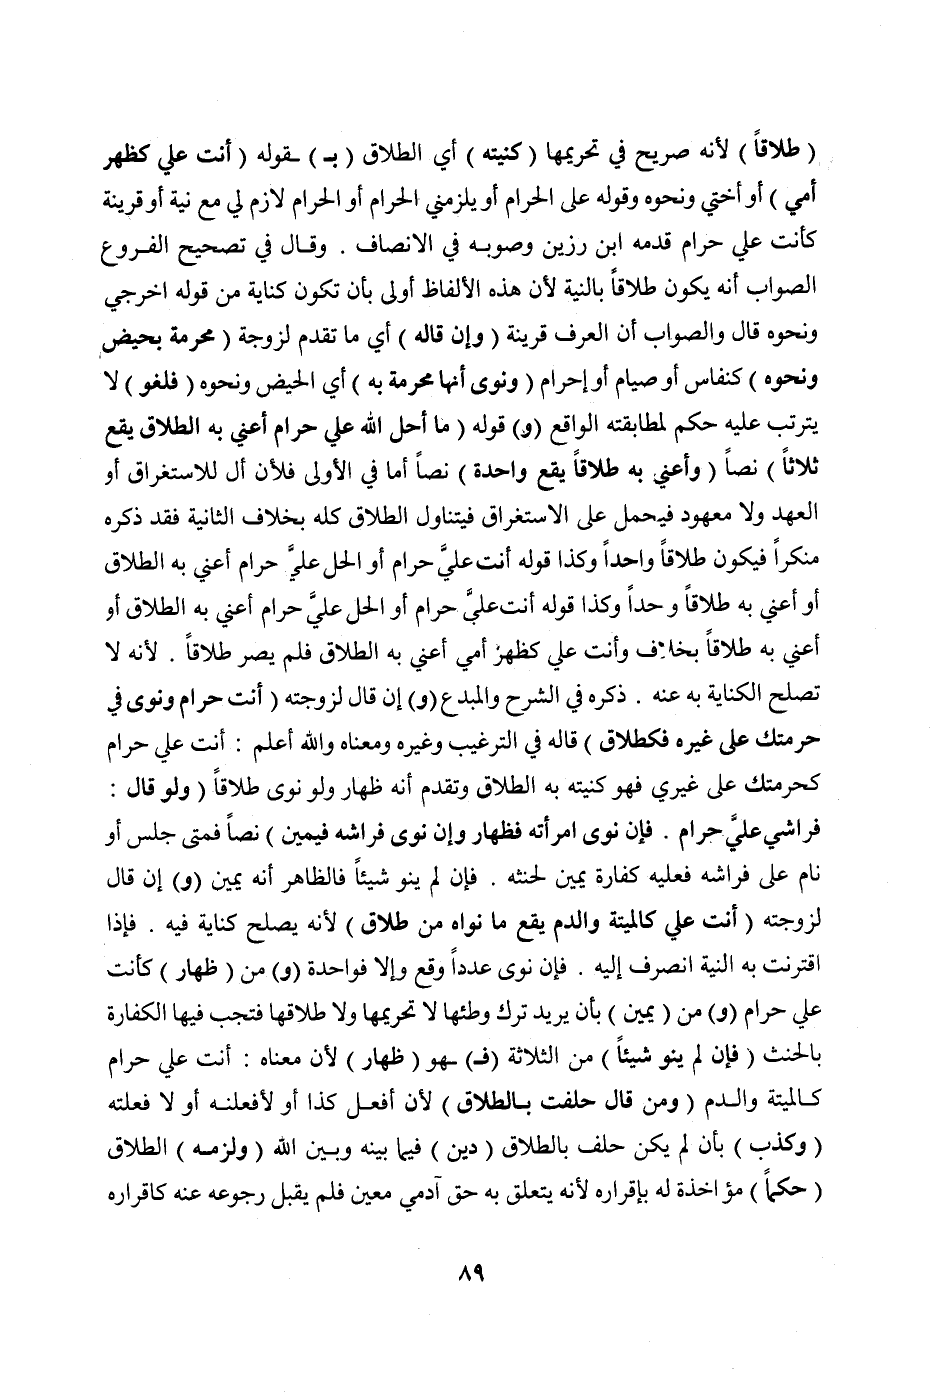 ( طلاقاً ) لأنه صريح في تحريمها ( كنيته ) أي الطلاق ( بـ ) ـقوله ( أنت علي كظهر
أمي ) أو أختي ونحوه وقوله على الحرام أو يلزمني الحرام أو الحرام لازم لي مع نية أو قرينة
كأنت علي حرام قدمه ابن رزين وصوبه في الانصاف . وقال في تصحيح الفروع
الصواب أنه يكون طلاقاً بالنية لأن هذه الألفاظ أولى بأن تكون كناية من قوله اخرجي
ونحوه قال والصواب أن العرف قرينة ( وإن قاله ) أي ما تقدم لزوجة ( محرمة بحيض
ونحوه ) كنفاس أو صيام أو إحرام ( ونوى أنها محرمة به ) أي الحيض ونحوه ( فلغو ) لا
يترتب عليه حكم لمطابقته الواقع (و) قوله ( ما أحل الله علي حرام أعني به الطلاق يقع
ثلاثاً ) نصاً ( وأعني به طلاقاً يقع واحدة ) نصاً أما في الأولى فلأن أل للاستغراق أو
العهد ولا معهود فيحمل على الاستغراق فيتناول الطلاق كله بخلاف الثانية فقد ذكره
منكراً فيكون طلاقاً واحداً وكذا قوله أنت عليَّ حرام أو الحل عليَّ حرام أعني به الطلاق
أو أعني به طلاقاً وحداً وكذا قوله أنت عليَّ حرام أو الحل عليَّ حرام أعني به الطلاق أو
أعني به طلاقاً بخلاف وأنت علي كظهر أمي أعني به الطلاق فلم يصر طلاقاً . لأنه لا
تصلح الكناية به عنه . ذكره في الشرح والمبدع (و) إن قال لزوجته ( أنت حرام ونوى في
حرمتك على غيره فكطلاق ) قاله في الترغيب وغيره ومعناه والله أعلم : أنت علي حرام
كحرمتك على غيري فهو كنيته به الطلاق وتقدم أنه ظهار ولو نوى طلاقاً ( ولو قال :
فراشي عليَّ حرام . فإن نوى امرأته فظهار وإن نوى فراشه فيمين ) نصاً فمتى جلس أو
نام على فراشه فعليه كفارة يمين لحنثه . فإن لم ينو شيئاً فالظاهر أنه يمين (و) إن قال
لزوجته ( أنت علي كالميتة والدم يقع ما نواه من طلاق ) لأنه يصلح كناية فيه . فإذا
اقترنت به النية انصرف إليه . فإن نوى عدداً وقع وإلا فواحدة (و) من ( ظهار ) كأنت
علي حرام (و) من ( يمين ) بأن يريد ترك وطئها لا تحريمها ولا طلاقها فتجب فيها الكفارة
بالحنث ( فإن لم ينو شيئاً ) من الثلاثة (فـ) ـهو ( ظهار ) لأن معناه : أنت علي حرام
كالميتة والدم ( ومن قال حلفت بالطلاق ) لأن أفعل كذا أو لأفعلنه أو لا فعلته
( وكذب ) بأن لم يكن حلف بالطلاق ( دين ) فيما بينه وبين الله ( ولزمه ) الطلاق
( حكماً ) مؤاخذة له بإقراره لأنه يتعلق به حق آدمي معين فلم يقبل رجوعه عنه كاقراره
٨٩